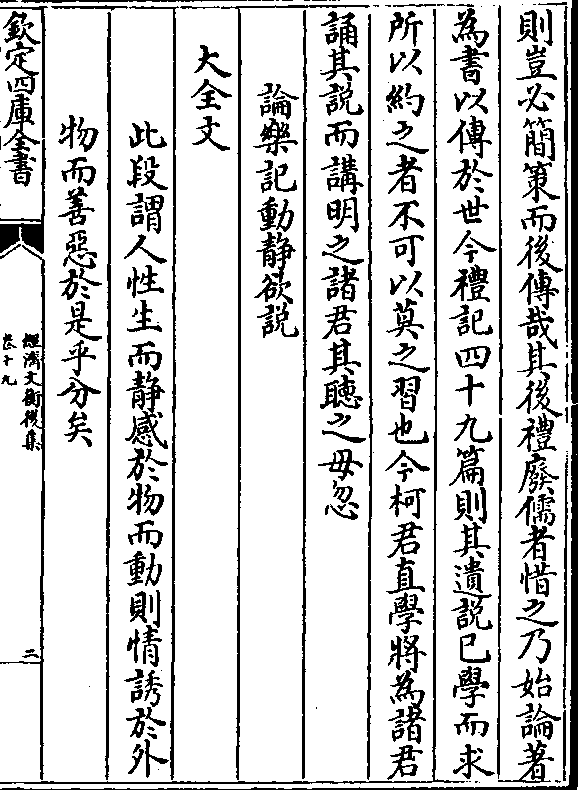 則豈必簡策而後傳哉其後禮廢儒者惜之乃始論著
為書以傳於世今禮記四十九篇則其遺說已學而求
所以約之者不可以莫之習也今柯君直學將為諸君
誦其説而講明之諸君其聽之毋忽
論樂記動静欲説
大全文
此段謂人性生而静感於物而動則情誘於外
物而善惡於是乎分矣
欽定四庫全書
經濟文衡後集
卷十九
二